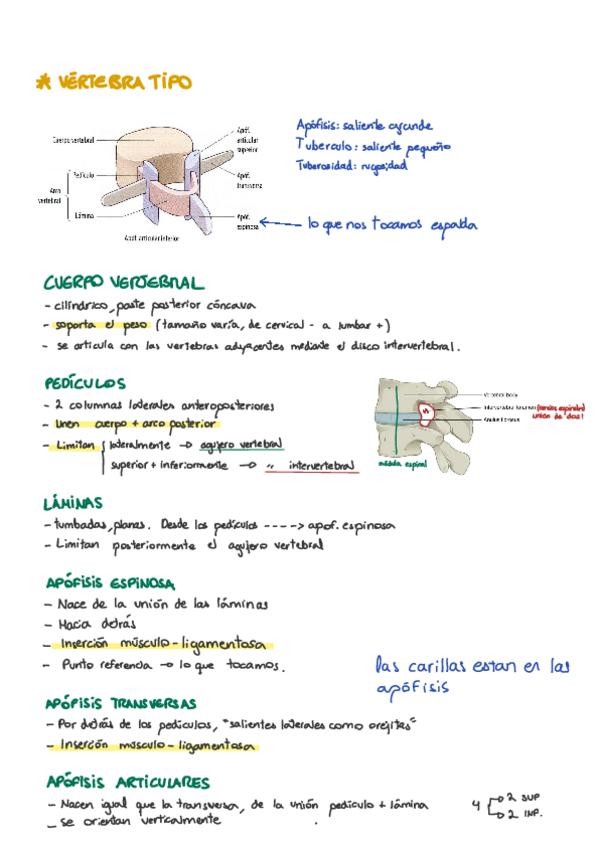 * VÉRTEBRA TIPO
Cuerpo vertebral
Pedículo
Arco vertebral
Lámina
Apóf. articular superior
Apóf. transversa
Apóf. espinosa
Apóf. articular inferior
Apófisis: saliente grande
Tuberculo: saliente pequeño
Tuberosidad: rugosidad
lo que nos tocamos espalda
CUERPO VERTEBRAL
- cilíndrico, parte posterior cóncava
- soporta el peso (tamaño varía, de cervical - a lumbar +)
- se articula con las vertebras adyacentes mediante el disco intervertebral.
PEDÍCULOS
- 2 columnas laterales anteroposteriores
- Unen cuerpo + arco posterior
- Limitan lateralmente → agujero vertebral
superior + inferiormente → " intervertebral
Vertebral body
Intervertebral foramen (nervios espinales)
unión de dos!
Anulus fibrosus
médula espinal
LÁMINAS
- tumbadas, planas. Desde los pedículos ----> apof. espinosa
- Limitan posteriormente el agujero vertebral
APÓFISIS ESPINOSA
- Nace de la unión de las láminas
- Hacia detrás
- Inserción músculo-ligamentosa
- Punto referencia → lo que tocamos.
las carillas estan en las
apófisis
APÓFISIS TRANSVERSAS
- Por detrás de los pediculos, "salientes laterales como orejitas"
- Inserción músculo-ligamentosa
APÓFISIS ARTICULARES
- Nacen igual que la transversa, de la unión pedículo + lámina
4 → 2 SUP
→ 2 INF.
- se orientan verticalmente